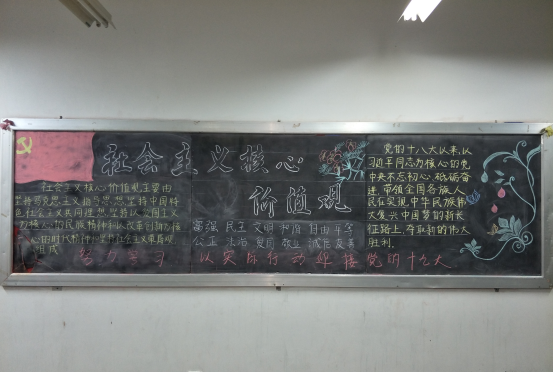 社会主义核心
价值观
社会主义核心价值观主要由
坚持马克思主义指导思想坚持中国特
色社会主义共同理想坚持以爱国主义
为核心的民族精神和以改革创新为核
心的时代精神坚持社会主义荣辱观
富强 民主 文明 和谐 自由 平等
公正 法治 爱国 敬业 诚信 友善
党的十八大以来,以
习近平同志为核心的党
中央不忘初心,砥砺奋
进,带领全国各族人
民在实现中华民族伟
大复兴中国梦的新长
征路上,夺取新的伟大
胜利.
努力学习 以实际行动迎接党的十九大